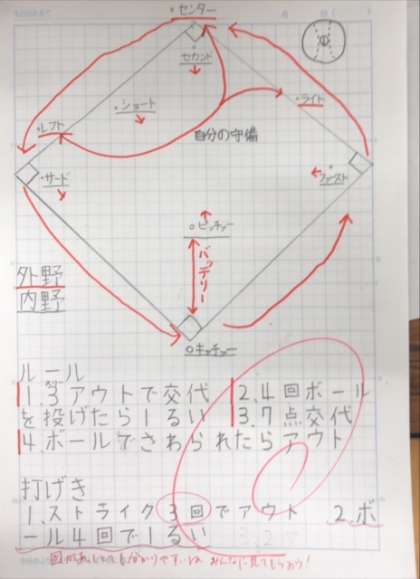 センター
セカンド
ショート
ライト
レフト
自分の守備
サード
ファースト
ピッチャー
バッテリー
外野
内野
キャッチャー
ルール
1.3アウトで交代 2.4回ボール
を投げたら1るい 3.7点交代
4ボールでさわられたらアウト
打げき
1.ストライク3回でアウト 2.ボ
ール4回で1るい
図があってとても分かりやすいね みんなに見てもらおう!